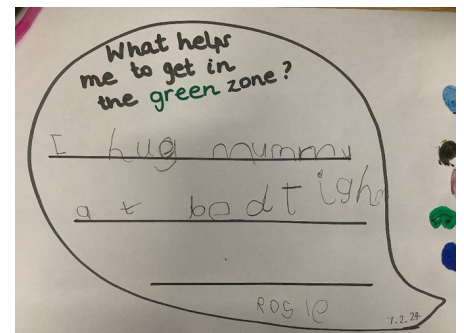 What helps
me to get in
the green zone?
I hug mummy
at
Rosie
7.2.24